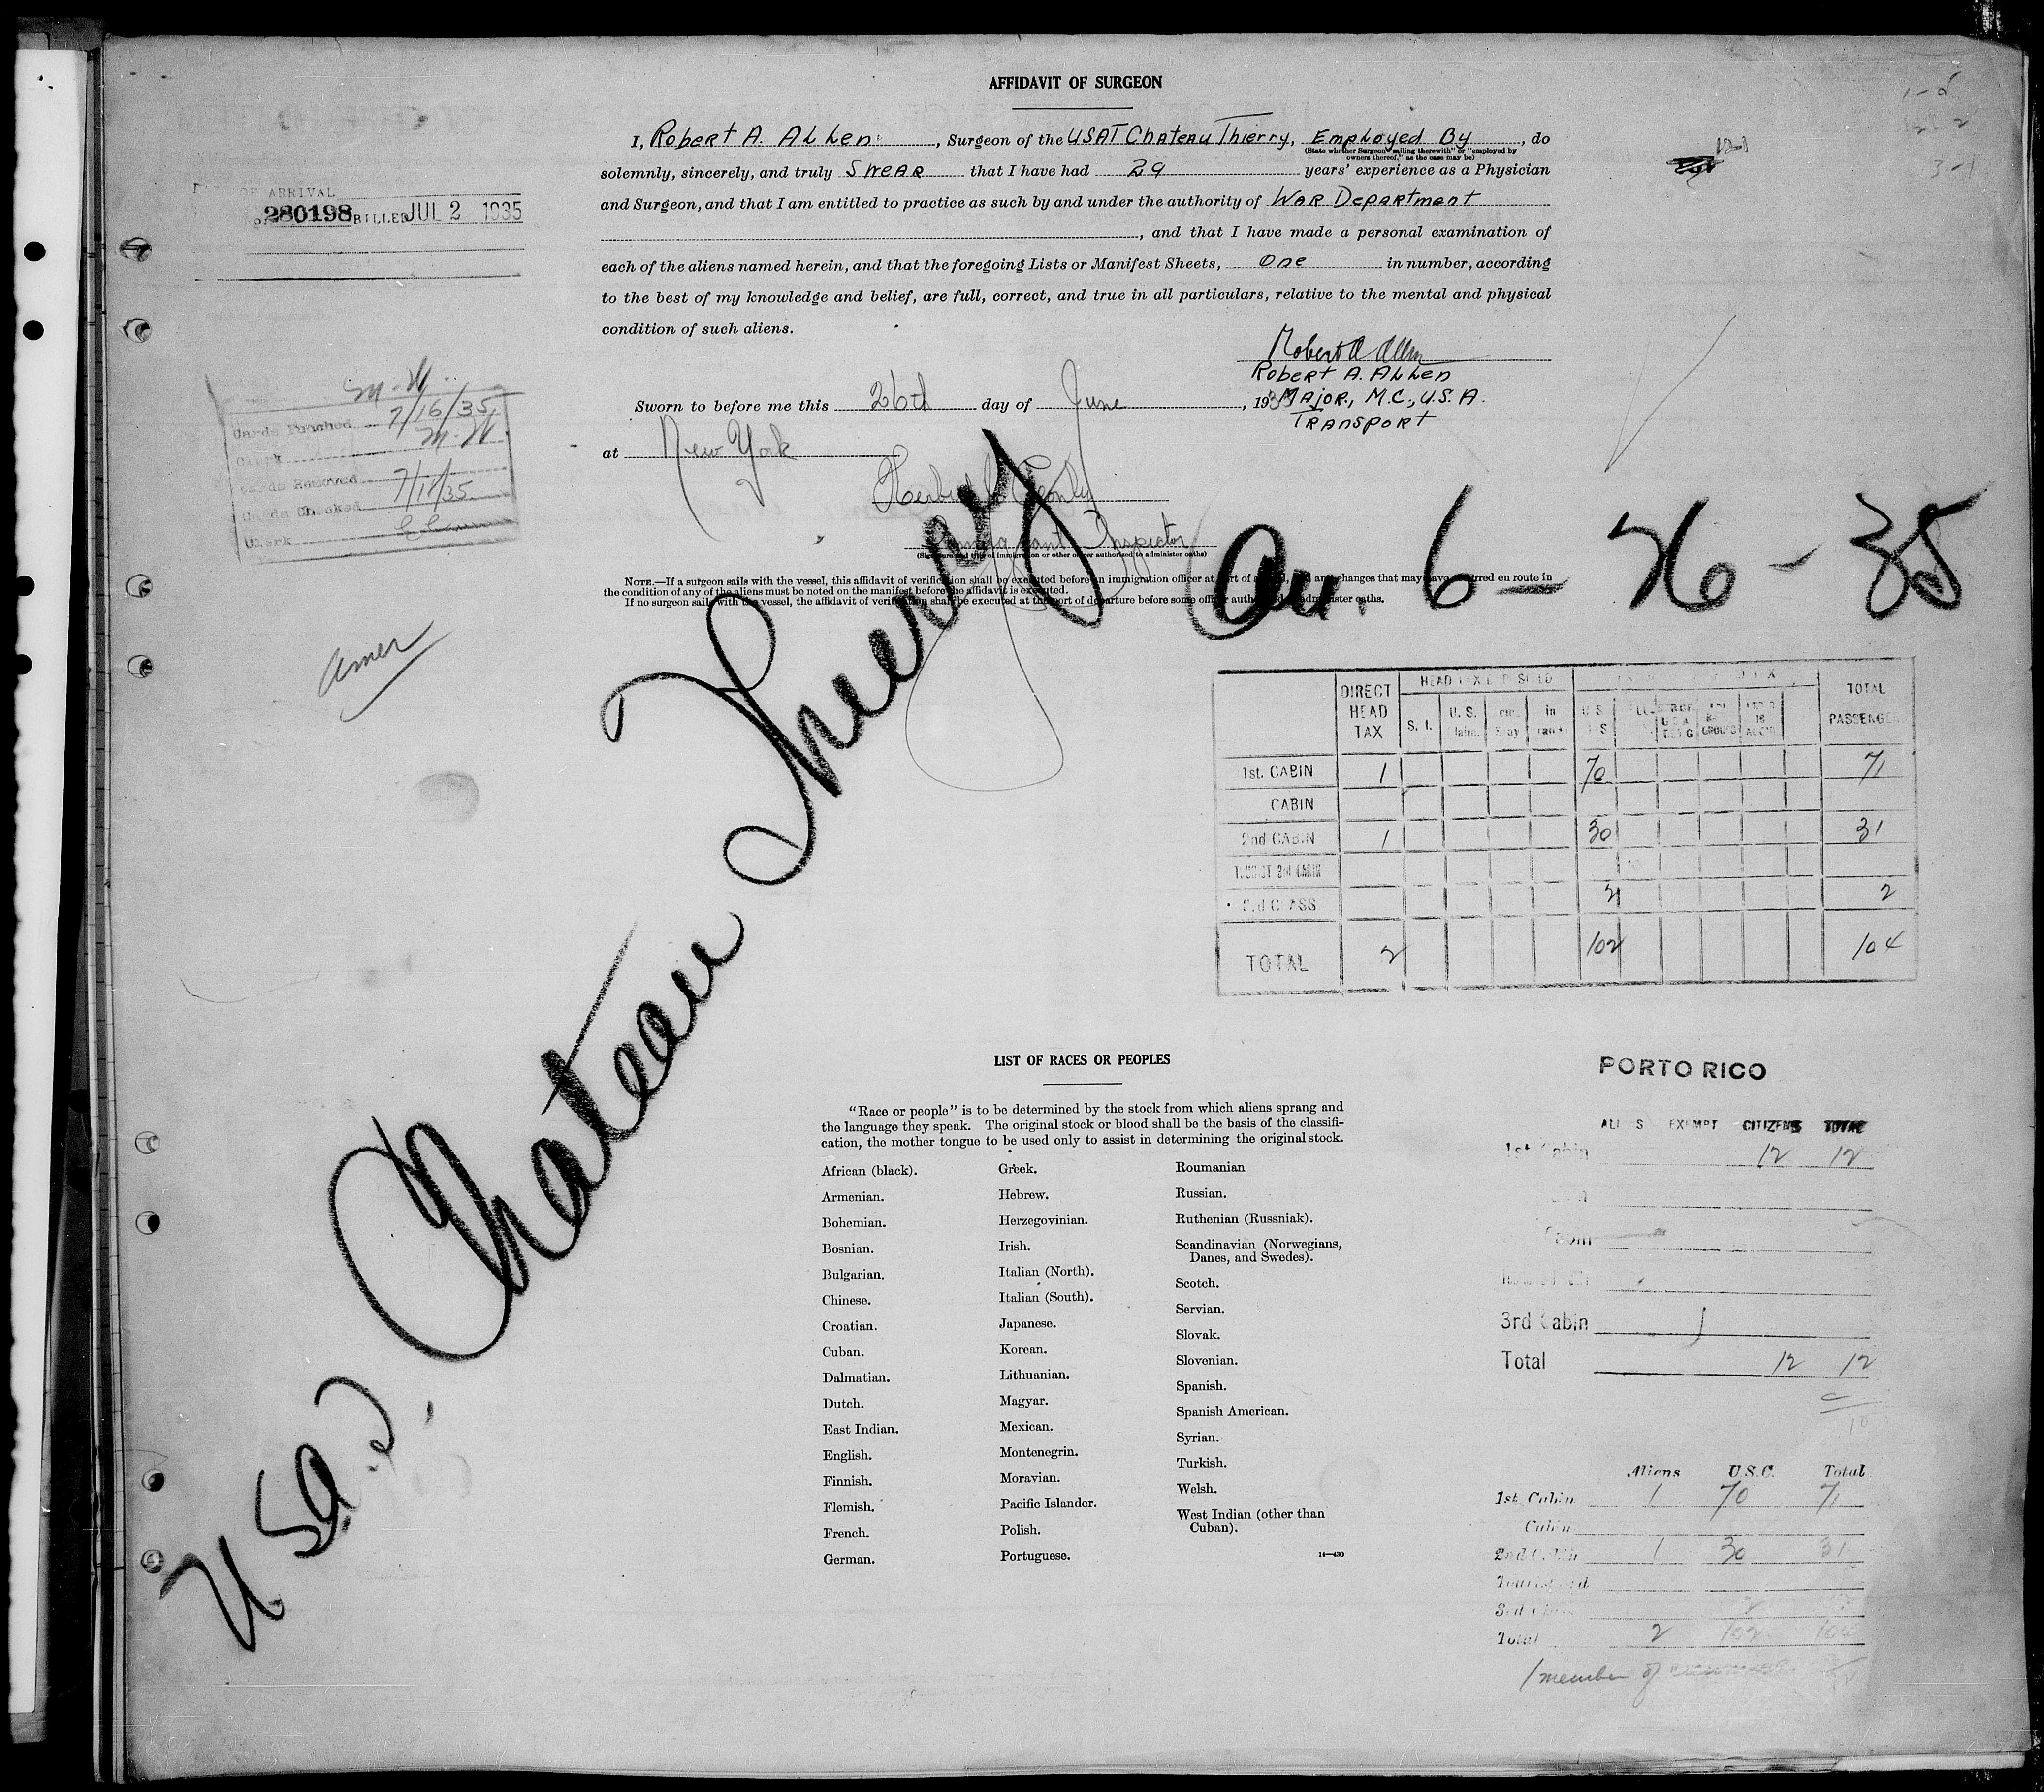 AFFIDAVIT OF SURGEON
I, Robert A. Allen, Surgeon of the USAT Chateau Thierry, Employed By, do
(State whether Surgeon "sailing therewith" or "employed by
owners thereof," as the case may be)
solemnly, sincerely, and truly Swear that I have had 29 years' experience as a Physician
and Surgeon, and that I am entitled to practice as such by and under the authority of War Department
, and that I have made a personal examination of
each of the aliens named herein, and that the foregoing Lists or Manifest Sheets, One in number, according
to the best of my knowledge and belief, are full, correct, and true in all particulars, relative to the mental and physical
condition of such aliens.
OF ARRIVAL
280198 BILLED JUL 2 1935
1-1
3-1
Robert A Allen
Robert A. Allen
Major, M.C., U.S.A.
Transport
Sworn to before me this 26th day of June, 193
at New York
Immigrant Inspector
(Signature and title of immigration or other officer authorized to administer oaths)
M.W.
Cards Punched 7/16/35
Clerk M.W.
Cards Removed
Cards Checked 7/17/35
Clerk
NOTE.—If a surgeon sails with the vessel, this affidavit of verification shall be executed before an immigration officer at port of arrival, and any changes that may have occurred en route in
the condition of any of the aliens must be noted on the manifest before the affidavit is executed.
If no surgeon sails with the vessel, the affidavit of verification shall be executed at the port of departure before some officer authorized to administer oaths.
Arr. 6-26-35
Amer
U.S.A.T. Chateau Thierry
DIRECT HEAD TAX
S. I.
U. S. Claim.
TOTAL PASSENGER
1st. CABIN 1 70 71
CABIN
2nd CABIN 1 30 31
TOURIST 3rd CABIN
3rd CLASS 2 2
TOTAL 2 102 104
LIST OF RACES OR PEOPLES
"Race or people" is to be determined by the stock from which aliens sprang and
the language they speak. The original stock or blood shall be the basis of the classifi-
cation, the mother tongue to be used only to assist in determining the original stock.
African (black).
Armenian.
Bohemian.
Bosnian.
Bulgarian.
Chinese.
Croatian.
Cuban.
Dalmatian.
Dutch.
East Indian.
English.
Finnish.
Flemish.
French.
German.
Greek.
Hebrew.
Herzegovinian.
Irish.
Italian (North).
Italian (South).
Japanese.
Korean.
Lithuanian.
Magyar.
Mexican.
Montenegrin.
Moravian.
Pacific Islander.
Polish.
Portuguese.
Roumanian
Russian.
Ruthenian (Russniak).
Scandinavian (Norwegians,
Danes, and Swedes).
Scotch.
Servian.
Slovak.
Slovenian.
Spanish.
Spanish American.
Syrian.
Turkish.
Welsh.
West Indian (other than
Cuban).
14—430
PORTO RICO
ALIENS EXEMPT CITIZENS TOTAL
1st Cabin 12 12
Cabin
3rd Cabin
Total 12 12
Aliens U.S.C. Total
1st Cabin 1 70 71
Cabin
2nd Cabin 1 30 31
Tourist 3rd
3rd Class 2
Total 2 102 104
1 member of